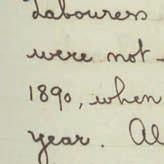 Labourers
were not
1890, when
year. Al